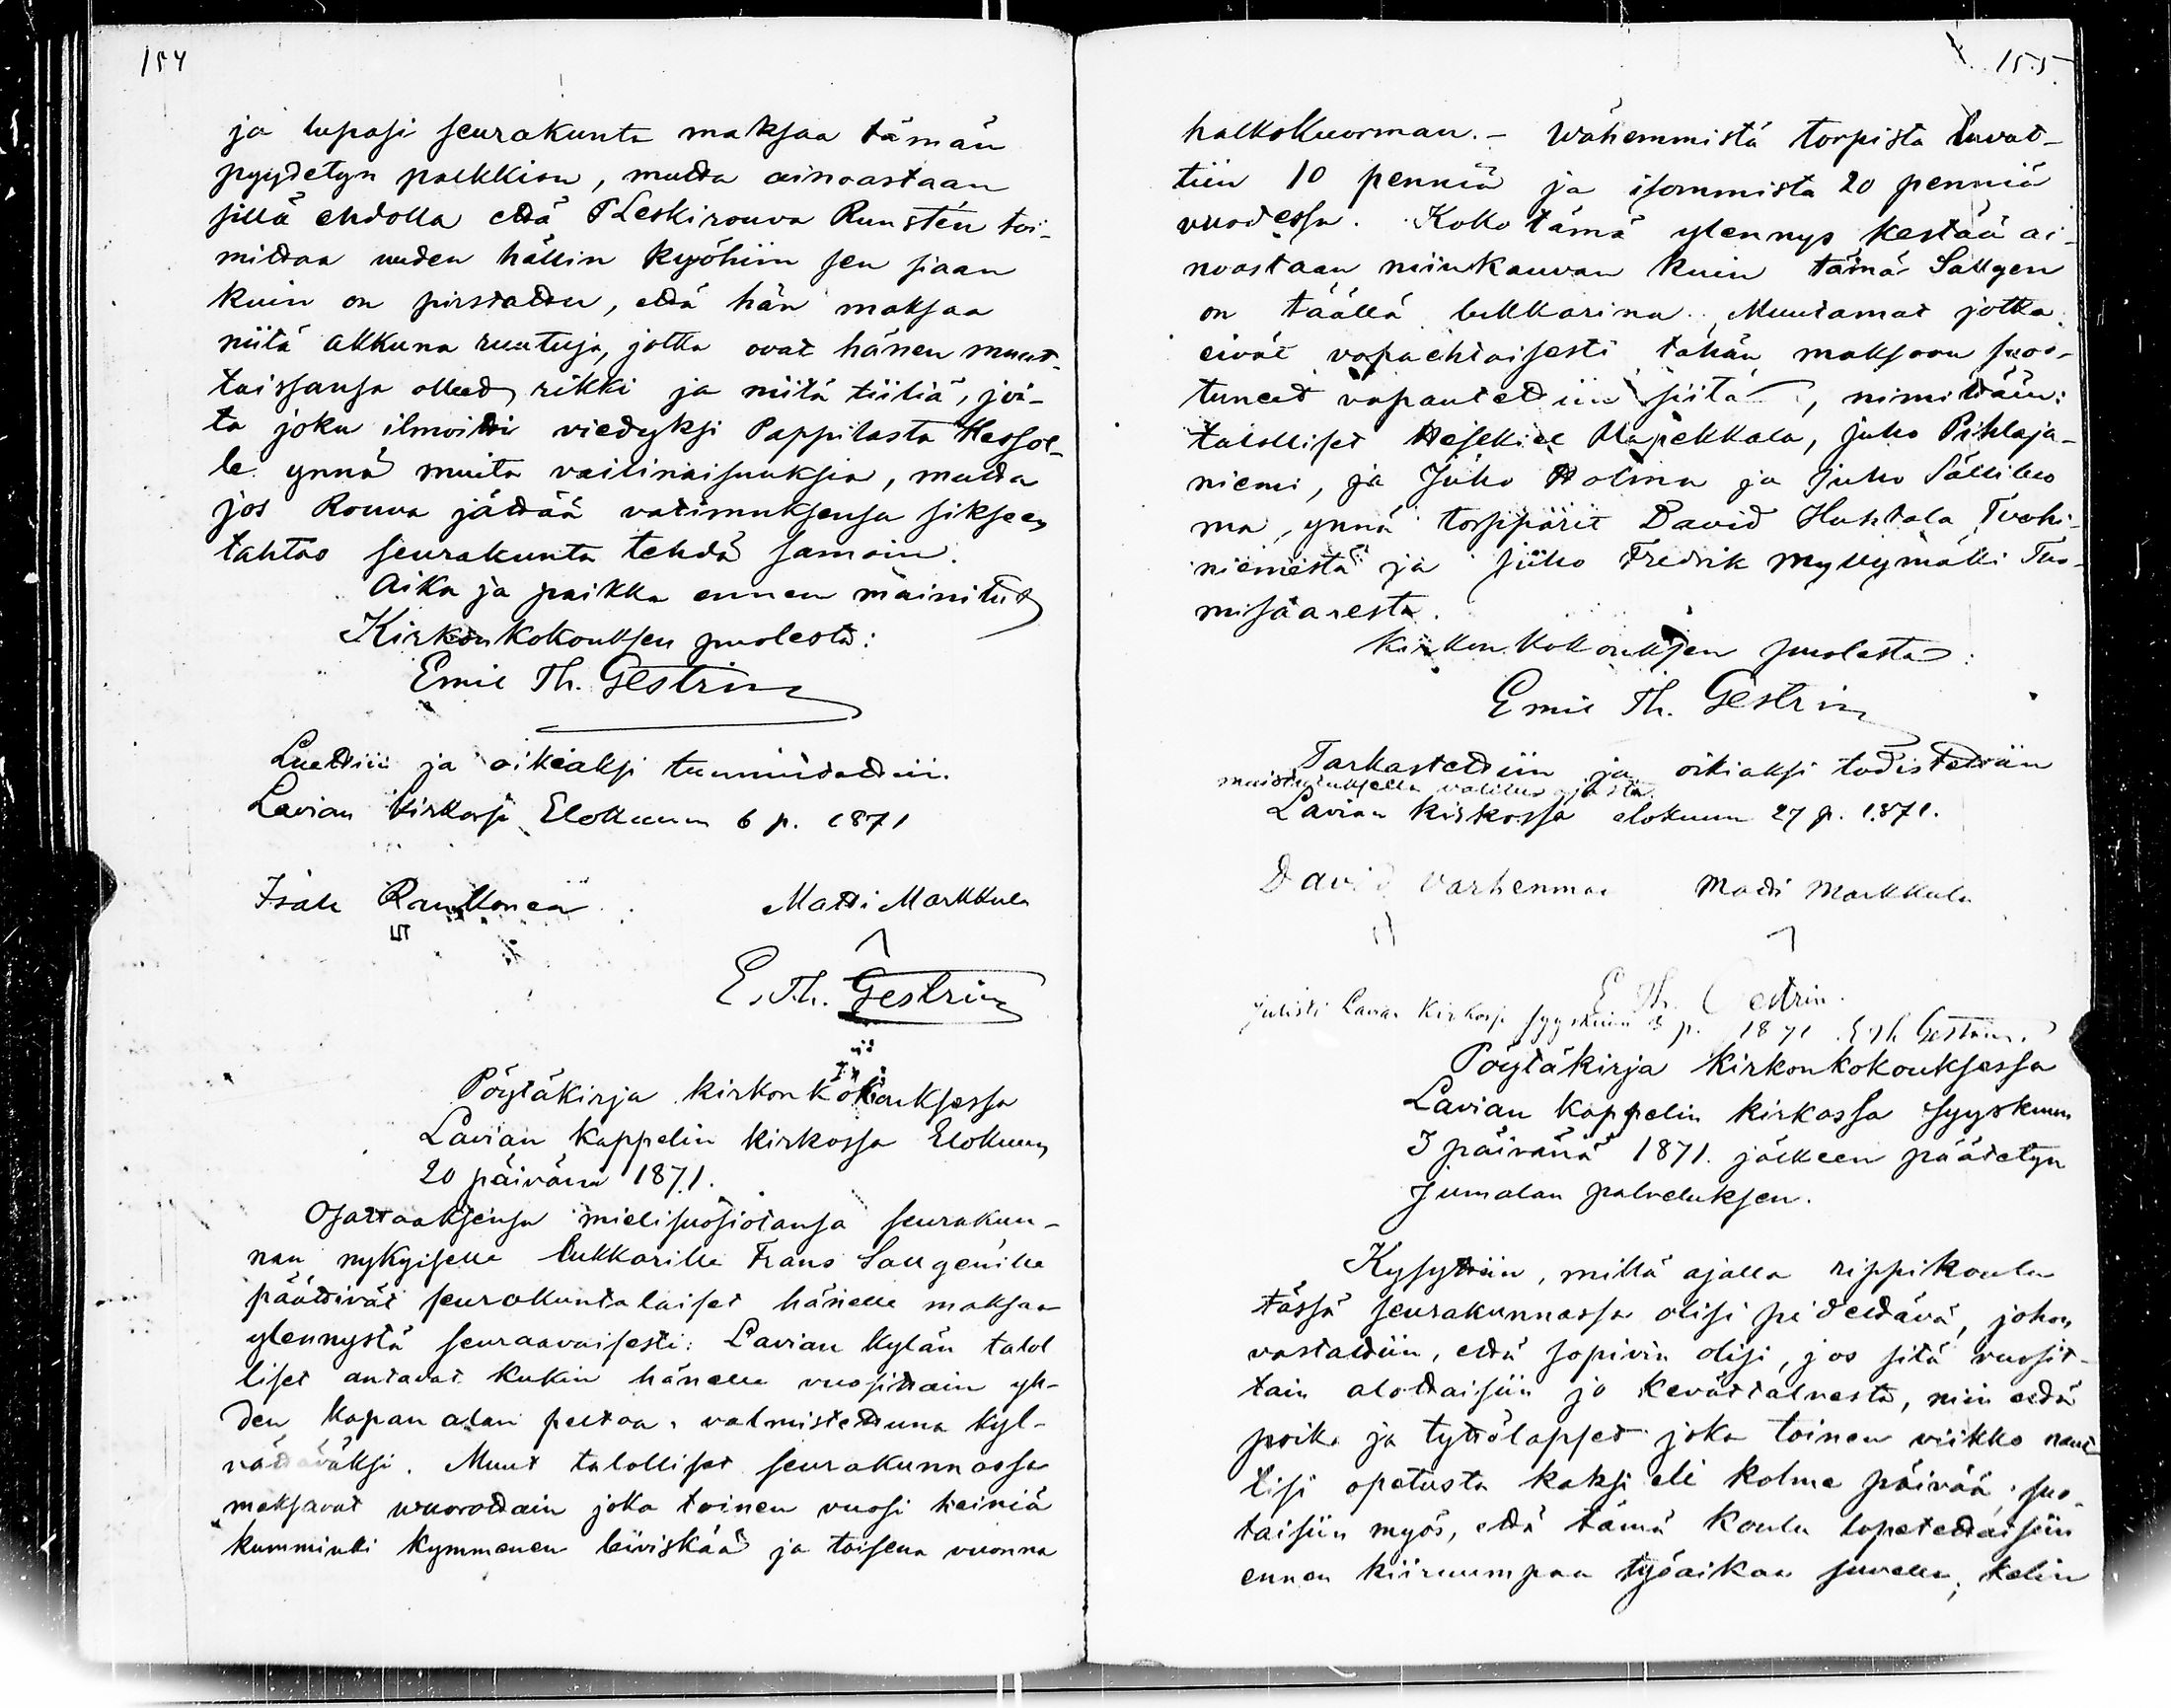 154
ja lupasi seurakunta maksaa tämän
pyydetyn palkkion, mutta ainoastaan
sillä ehdolla että Leskirouva Runstén toi-
mittaa uuden hällin kyöhiin sen siaan
kuin on pirstattu, että hän maksaa
niitä akkuna ruutuja, jotka ovat hänen muut-
taissansa olleet rikki ja niitä tiiliä, joi-
ta joku ilmoitti viedyksi Pappilasta
le ynnä muita vaillinaisuuksia, mutta
jos Rouva jättää vatimuksensa sikseen
tahtoo seurakunta tehdä samoin.
Aika ja paikka ennen mainitut
Kirkonkokouksen puolesta:
Emil Th. Gestrin
Luettiin ja oikeaksi tunnustettiin.
Lavian kirkossa Elokuun 6 p. 1871
Isak Raukkonen Matti Markkula
E. Th. Gestrin
Pöytäkirja kirkonkokouksessa
Lavian kappelin kirkossa Elokuun
20 päivänä 1871.
Osottaaksensa mielisuosiotansa seurakun-
nan nykyiselle lukkarille Frans Sallgenille
päättivät seurakuntalaiset hänelle maksaa
ylennystä seuraavaisesti: Lavian kylän talol
liset antavat kukin hänelle vuosittain yh-
den kapan alan peltoa, valmistettuna kyl-
vättäväksi. Muut talolliset seurakunnassa
maksavat wuorottain joka toinen vuosi heiniä
kumminki kymmenen leiviskää ja toisena vuonna
155.
halkokuorman. - Wähemmistä torpista luvat-
tiin 10 penniä ja isommista 20 penniä
vuodessa. Koko tämä ylennys kestää ai-
noastaan niinkauvan kuin tämä Sallgen
on täällä lukkarina. Muutamat jotka
eivät vapaehtoisesti tähän maksoon suos-
tuneet vapautettiin siitä, nimittäin:
talolliset Heskiel Ylapekkala, Juho Pihlaja-
niemi, ja Juho Holma ja Juho Sälliluo
ma, ynnä torpparit David Huhtala Tuohi-
niemestä ja Juho Fredrik Myllymäki Tuo-
misaaresta.
Kirkon kokouksen puolesta:
Emil Th. Gestrin
Tarkastettiin ja oikiaksi todistettiin
muistutuksella
Lavian kirkossa elokuun 27 p. 1871.
David Varhenmaa Matti Markkula
E Th. Gestrin.
Julisti Lavian kirkossa syyskuun 3 p. 1871 E Th Gestrin.
Pöytäkirja kirkonkokouksessa
Lavian kappelin kirkossa syyskuun
3 päivänä 1871. jälkeen päätetyn
Jumalan palveluksen.
Kysyttiin, millä ajalla rippikoulu
tässä seurakunnassa olisi pidettävä, johon
vastattiin, että sopivin olisi, jos sitä vuosit-
tain alottaisiin jo kevättalvesta, niin että
poika ja tyttölapset joka toinen viikko naut
tisi opetusta kaksi eli kolme päivää, suo-
taisiin myös, että tämä koulu lopetettaisiin
ennen kiiruumpaa työaikaa suvella;